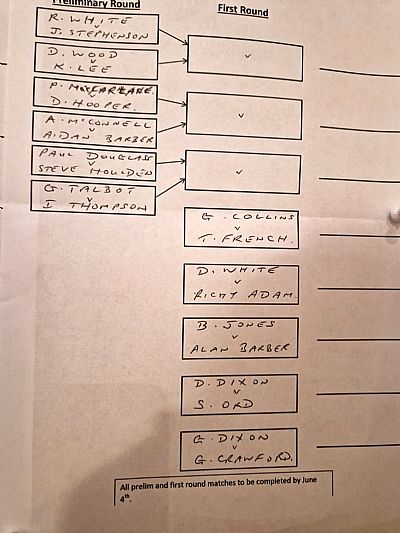 Preliminary Round
R. WHITE
v
J. STEPHENSON
D. WOOD
v
K. LEE
P. McFARLANE
v
D. HOOPER.
A. McCONNELL
v
AIDAN BARBER
PAUL DOUGLASS
v
STEVE HOULDEN
G. TALBOT
v
I THOMPSON
First Round
v
v
v
G. COLLINS
v
T. FRENCH.
D. WHITE
v
RICHY ADAM.
B. JONES
v
ALAN BARBER
D. DIXON
v
S. ORD
G. DIXON
v
G. CRAWFORD.
All prelim and first round matches to be completed by June
4th.